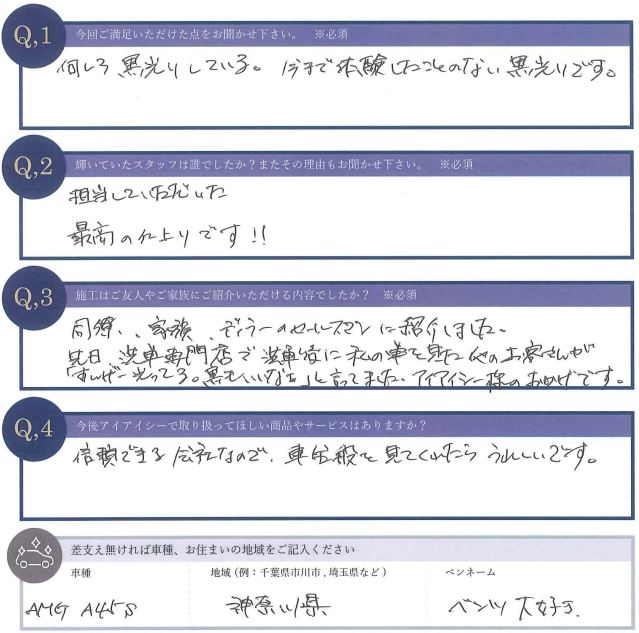 Q,1 今回ご満足いただけた点をお聞かせ下さい。 ※必須
何しろ黒光りしている。今まで体験したことのない黒光りです。
Q,2 輝いていたスタッフは誰でしたか?またその理由もお聞かせ下さい。 ※必須
担当していただいた
最高の仕上りです!!
Q,3 施工はご友人やご家族にご紹介いただける内容でしたか? ※必須
同僚、家族、ディーラーのセールスマンに紹介しました。
先日、洗車専門店で洗車後に私の車を見た他のお客さんが
「すんげー光ってる。黒もいいなぁ」と言ってました。アイアイシー様のおかげです。
Q,4 今後アイアイシーで取り扱ってほしい商品やサービスはありますか?
信頼できる会社なので、車全般を見てくれたらうれしいです。
差支え無ければ車種、お住まいの地域をご記入ください
車種 地域(例:千葉県市川市,埼玉県など) ペンネーム
AMG A45S 神奈川県 ベンツ大好き